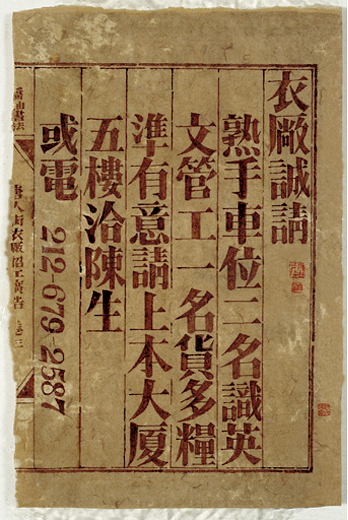 衣厰誠請
熟手車位二名識英
文管工一名貨多糧
準有意請上本大厦
五樓洽陳生
或電 212-679-2587
唐人街衣厰招工廣告